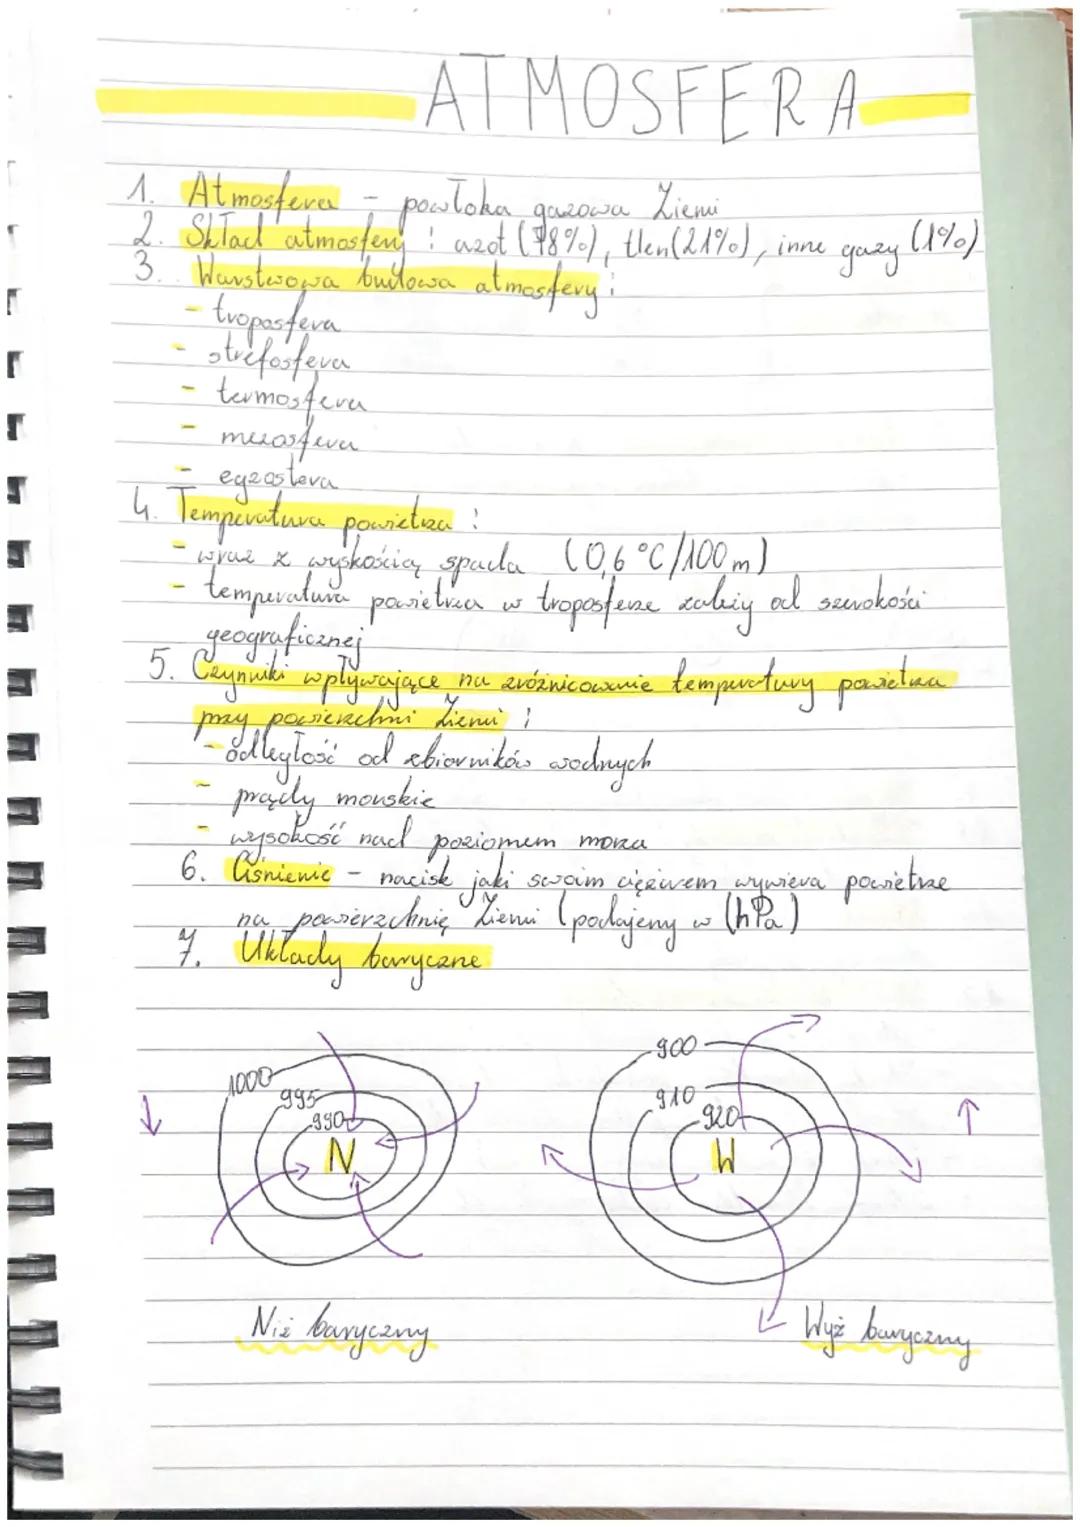 ATMOSFERA
1. Atmosfera - powłoka gazowa Ziemi
2. Skład atmosfery : azot (78%), tlen (21%), inne gazy (1%)
3. Warstwowa budowa atmosfery :
- troposfera
- strefosfera
- termosfera
- mezosfera
- egzosfera
4. Temperatura powietrza :
- wraz z wyskością spada (0,6 °C/100 m)
- temperatura powietrza w troposferze zależy od szerokości
geograficznej
5. Czynniki wpływające na zróżnicowanie temperatury powietrza
przy powierzchni Ziemi :
- odległość od zbiorników wodnych
- prądy morskie
- wysokość nad poziomem morza
6. Ciśnienie - nacisk jaki swoim ciężarem wywiera powietrze
na powierzchnię Ziemi (podajemy w (hPa)
7. Układy baryczne
1000
995
990
N
900
910
920
W
Niż baryczny
Wyż baryczny